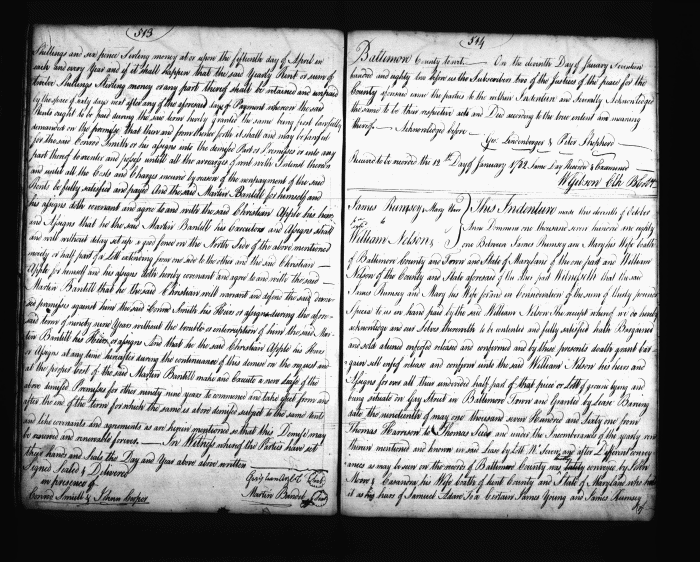 513
Shillings and six pence Sterling money at or upon the fifteenth day of April in
each and every Year and if it shall happen that the said Yearly Rent or sum of
Shillings Sterling money or any part thereof shall be retained and unpaid
by the space of sixty days next after any of the aforesaid days of Payment whereon the said
Rents ought to be paid during the said term hereby granted the same being first lawfully
demanded on the premises that then and from thence forth it shall and may be lawful
for the said Conrod Smith or his assigns into the demised Part or Premises or into any
part thereof to reenter and possess untill all the arrearages of rent with Interest thereon
and untill all the Costs and Charges incured by reason of the nonpayment of the said
Rents be fully satisfied and payed And the said Martin Bandill for himself and
his assigns doth covenant and agree to and with the said Christian Apple his Heirs
and Assigns that he the said Martin Bandill his Executors and Assigns shall
and will without delay set up a good fence on the North Side of the above mentioned
moiety or half part of a Lott extending from one side to the other and the said Christian
Apple for himself and his assigns doth hereby covenant and agree to and with the said
Martin Bandill that he the said Christian will warrant and defend the said demi-
sed premises against him the said Conrod Smith his Heirs or assigns during the afore-
said term of ninety nine Years without the trouble or interruption of him the said Mar-
tin Bandill his Heirs or assigns And that he the said Christian Apple his Heirs
or Assigns at any time hereafter during the continuance of this demise on the request and
at the proper cost of the said Martin Bandill make and Execute a new Lease of the
above demised Premises for other ninety nine years to commence and take effect from and
after the end of the term for which the same is above demised subject to the same rent
and like covenants and agreements as are herein mentioned so that this Demise may
be renewed and renewable forever. In Witness whereof the Parties have set
their hands and Seals the Day and Year above written
Signed Sealed & Delivered
in presence of
Christian Apple Seal
Conrod Smith &
Martin Bandel Seal
514
Baltimore County Court On the eleventh Day of January Seventeen
hundred and eighty two before us the Subscribers two of the Justices of the peace for the
County aforesaid came the parties to the within Indenture and Severally Acknowledged
the same to be their respective act and Deed according to the true intent and meaning
thereof Acknowledged before
Geo. Lindenberger & Peter Shepherd
Received to be recorded the 12th Day of January 1782 Same Day Recorded & Examined
W Gibson Clk
James Rumsey & Mary
to
William Nelson
This Indenture made this eleventh of October
Anno Domini one thousand seven hundred and eighty
one Between James Rumsey and Mary his Wife both
of Baltimore Town and State of Maryland of the one part and William
Nelson of the County and State aforesaid of the other part Witnesseth that the said
James Rumsey and Mary his Wife for and in Consideration of the sum of thirty pounds
Specie to us in hand paid by the said William Nelson the receipt whereof we do hereby
acknowledge and our Selves therewith to be contented and fully satisfied hath Bargained
and sold aliened enfeofed released and confirmed and by these presents doeth grant bar-
gain sell enfeof release and confirm unto the said William Nelson his heirs and
Assigns forever all thus undivided half part of that piece or Lott of ground lying and
being situate on Gay Street in Baltimore Town and Granted by Lease Bearing
date the nineteenth of may one thousand seven Hundred and Sixty one from
Thomas Harrison to Thomas and under the Incumbrance of the yearly rent
therein mentioned and known in said Lease by Lott N. Seven and after Different convey-
ances as may be seen on the record of Baltimore County was Lately conveyed by John
and Casandra his Wife both of Kent County and State of Maryland who have
it as heirs of Samuel Adair to a Certain James Young and James Rumsey
of